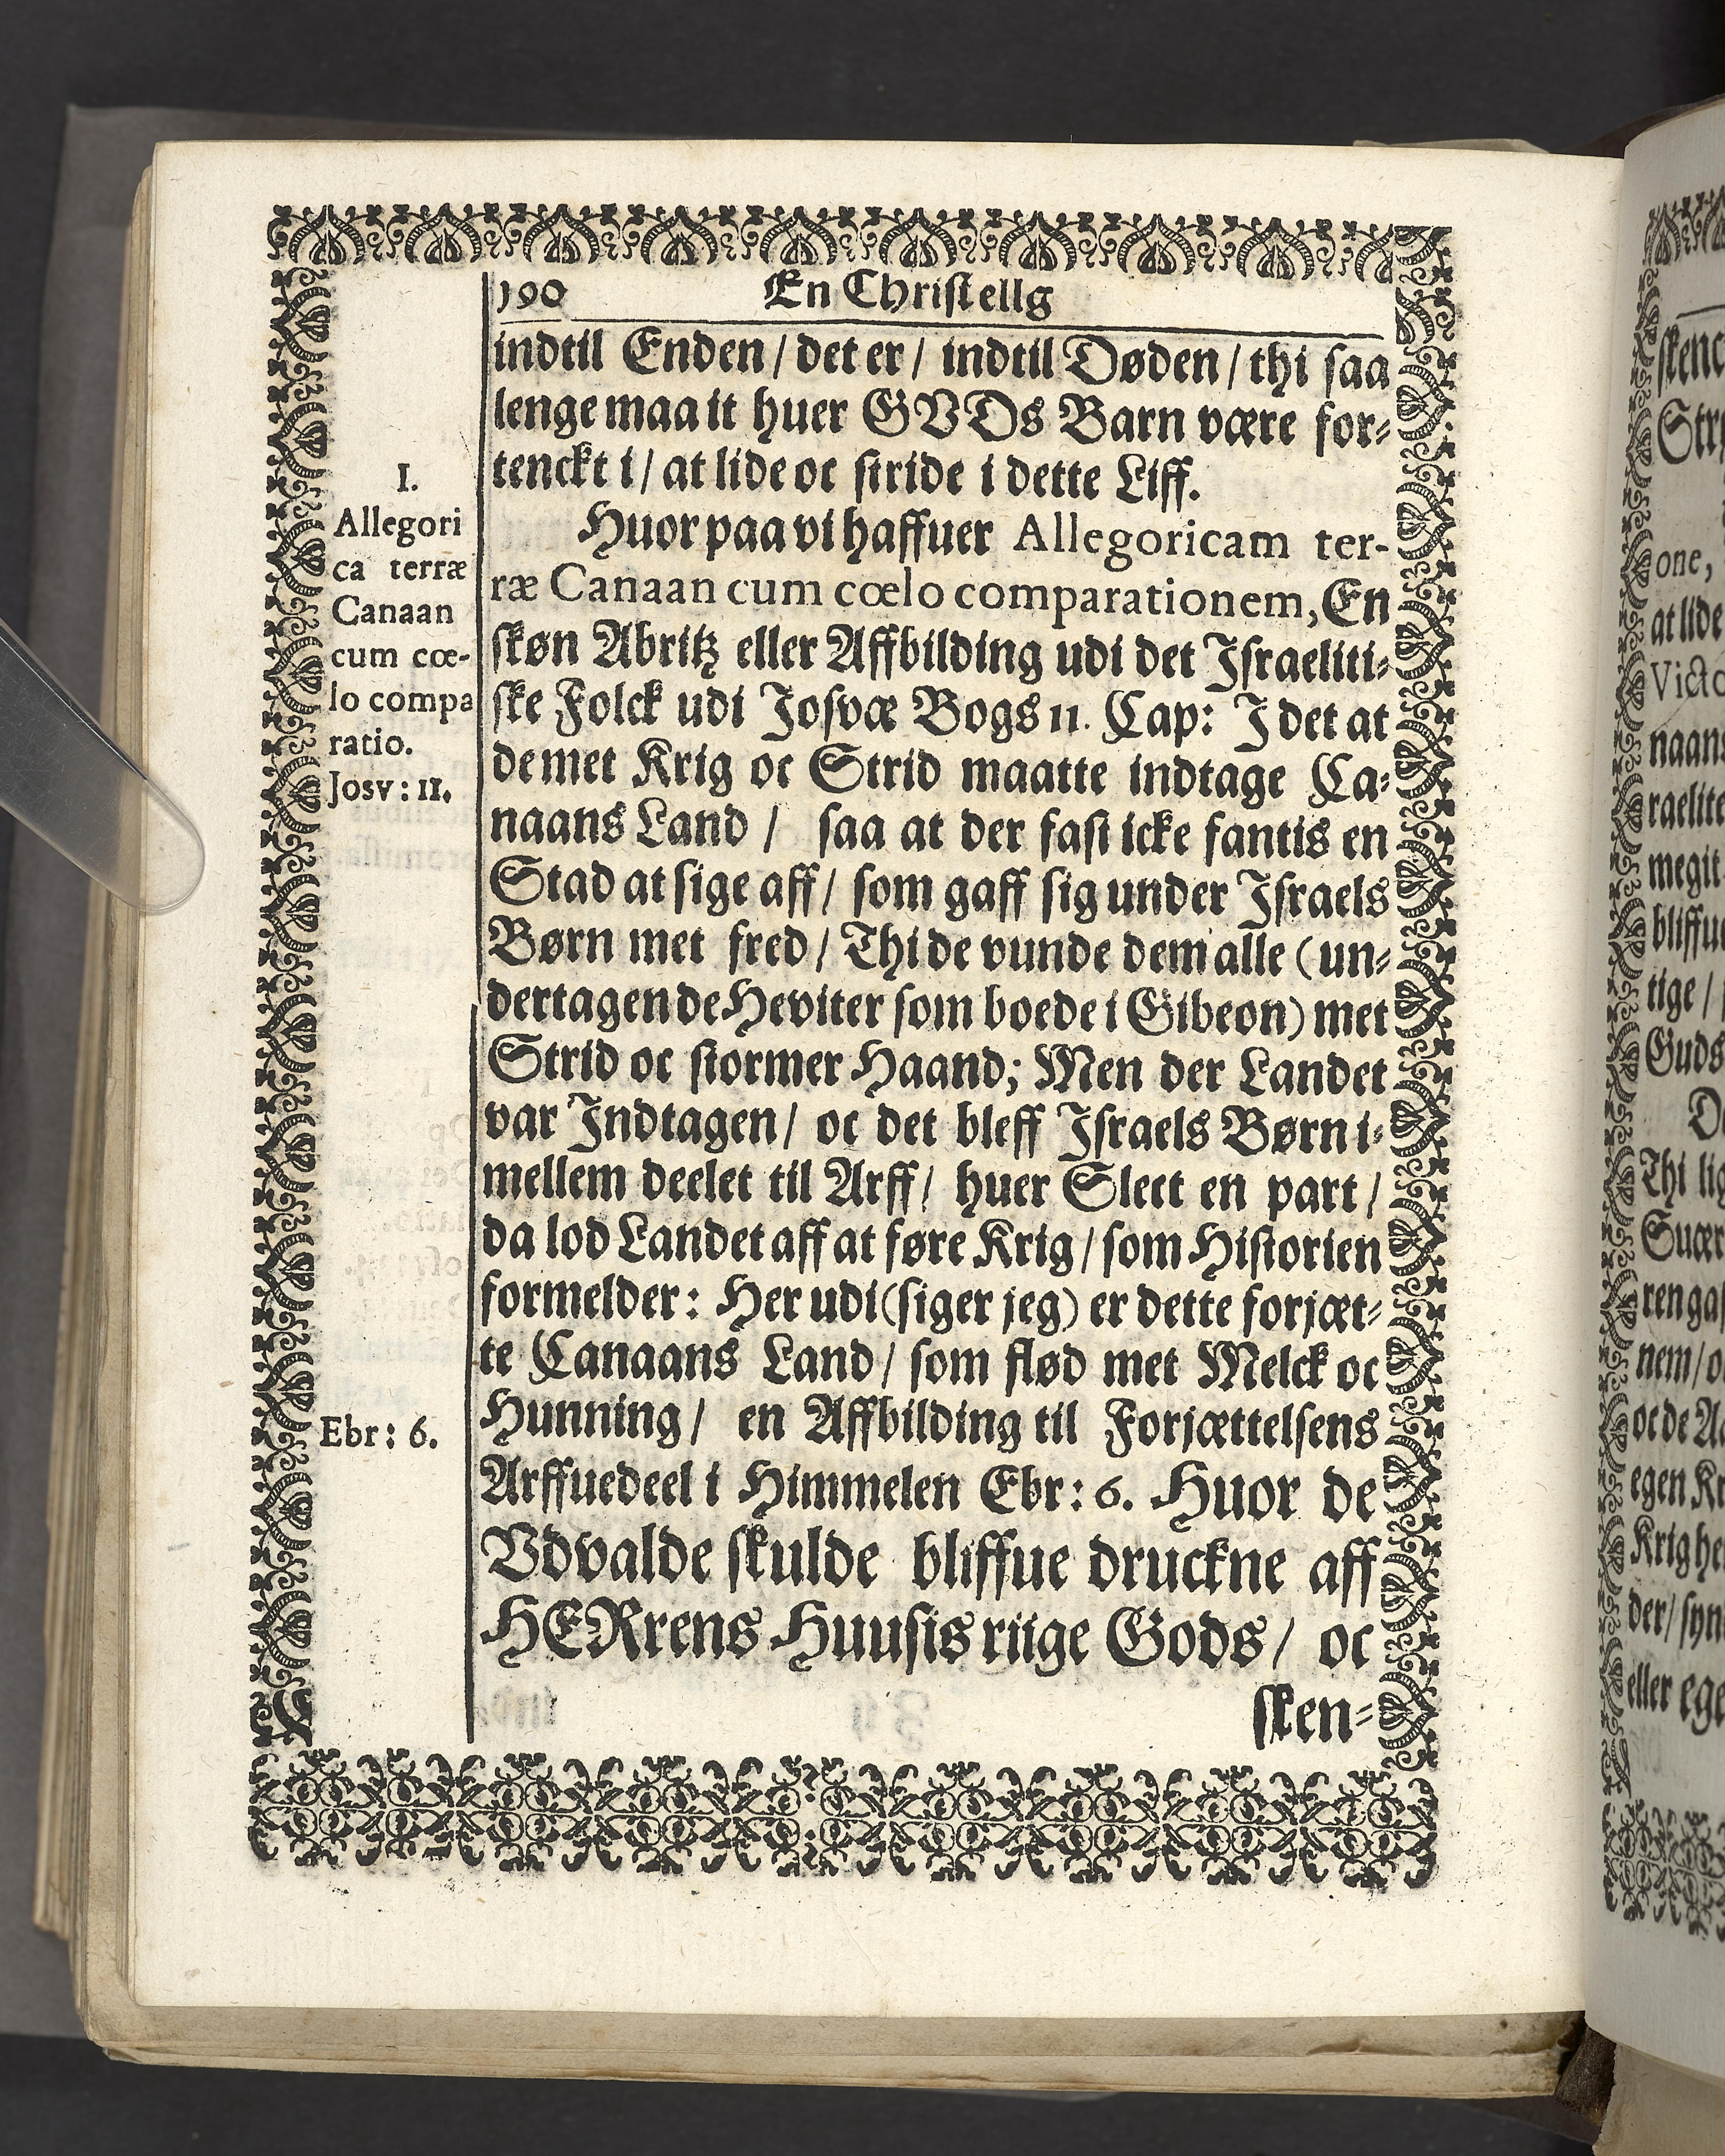 190 En Christellg
indtil Enden / det er / indtil Døden / thi saa
lenge maa it huer GVDs Barn være for-
tenckt i / at lide oc stride i dette Liff.
Huor paa vi haffuer Allegoricam ter-
ræ Canaan cum cœlo comparationem, En
skøn Abritz eller Affbilding udi det Israeliti-
ske Folck udi Josvæ Bogs 11. Cap: I det at
de met Krig oc Strid maatte indtage Ca-
naans Land / saa at der fast icke fantis en
Stad at sige aff / som gaff sig under Israels
Børn met fred / Thi de vunde dem alle (un-
dertagen de Heviter som boede i Gibeon) met
Strid oc stormer Haand; Men der Landet
var Indtagen / oc det bleff Israels Børn i-
mellem deelet til Arff / huer Slect en part /
da lod Landet aff at føre Krig / som Historien
formelder: Her udi (siger jeg) er dette forjæt-
te Canaans Land / som flød met Melck oc
Hunning / en Affbilding til Forjættelsens
Arffuedeel i Himmelen Ebr: 6. Huor de
Vdvalde skulde bliffue druckne aff
HERrens Huusis riige Gods / oc
sken-
I.
Allegori
ca terræ
Canaan
cum cœ-
lo compa
ratio.
Josv: 11.
Ebr: 6.
one,
at lide
naans
raelite
megit
tige /
Guds
Thi lig
nem / o
egen Kr
eller ege